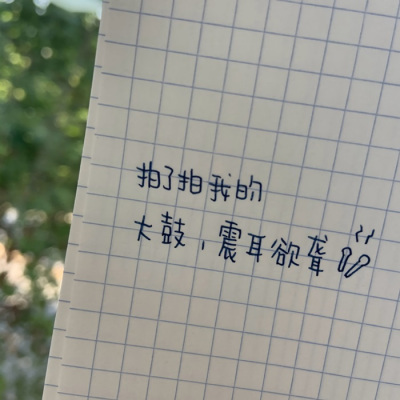 拍了拍我的
大鼓，震耳欲聋